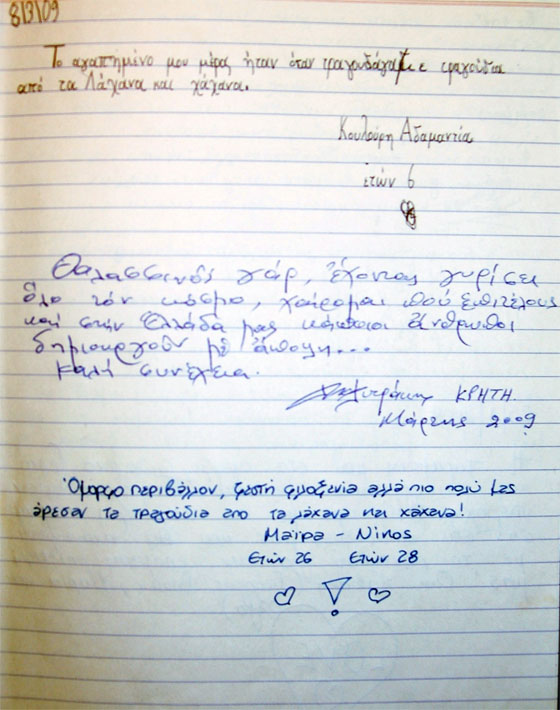 8/3/09
Το αγαπημένο μου μέρος ήταν όταν τραγουδάγαμε τραγούδια
από τα Λάχανα και χάχανα.
Κουλούρη Αδαμαντία
ετών 6
Θαλασσινός γάρ, ἔχοντας γυρίσει
ὅλο τόν κόσμο, χαίρομαι πού ἐπιτέλους
καί στήν Ἑλλάδα μας κάποιοι ἄνθρωποι
δημιουργοῦν μέ ἄποψη...
Καλή συνέχεια.
ΚΡΗΤΗ
Μάρτης 2009
Όμορφο περιβάλλον, ζεστή φιλοξενία αλλά πιο πολύ μας
άρεσαν τα τραγούδια από τα λάχανα και χάχανα!
Μαίρα - Νίκος
Ετών 26 Ετών 28